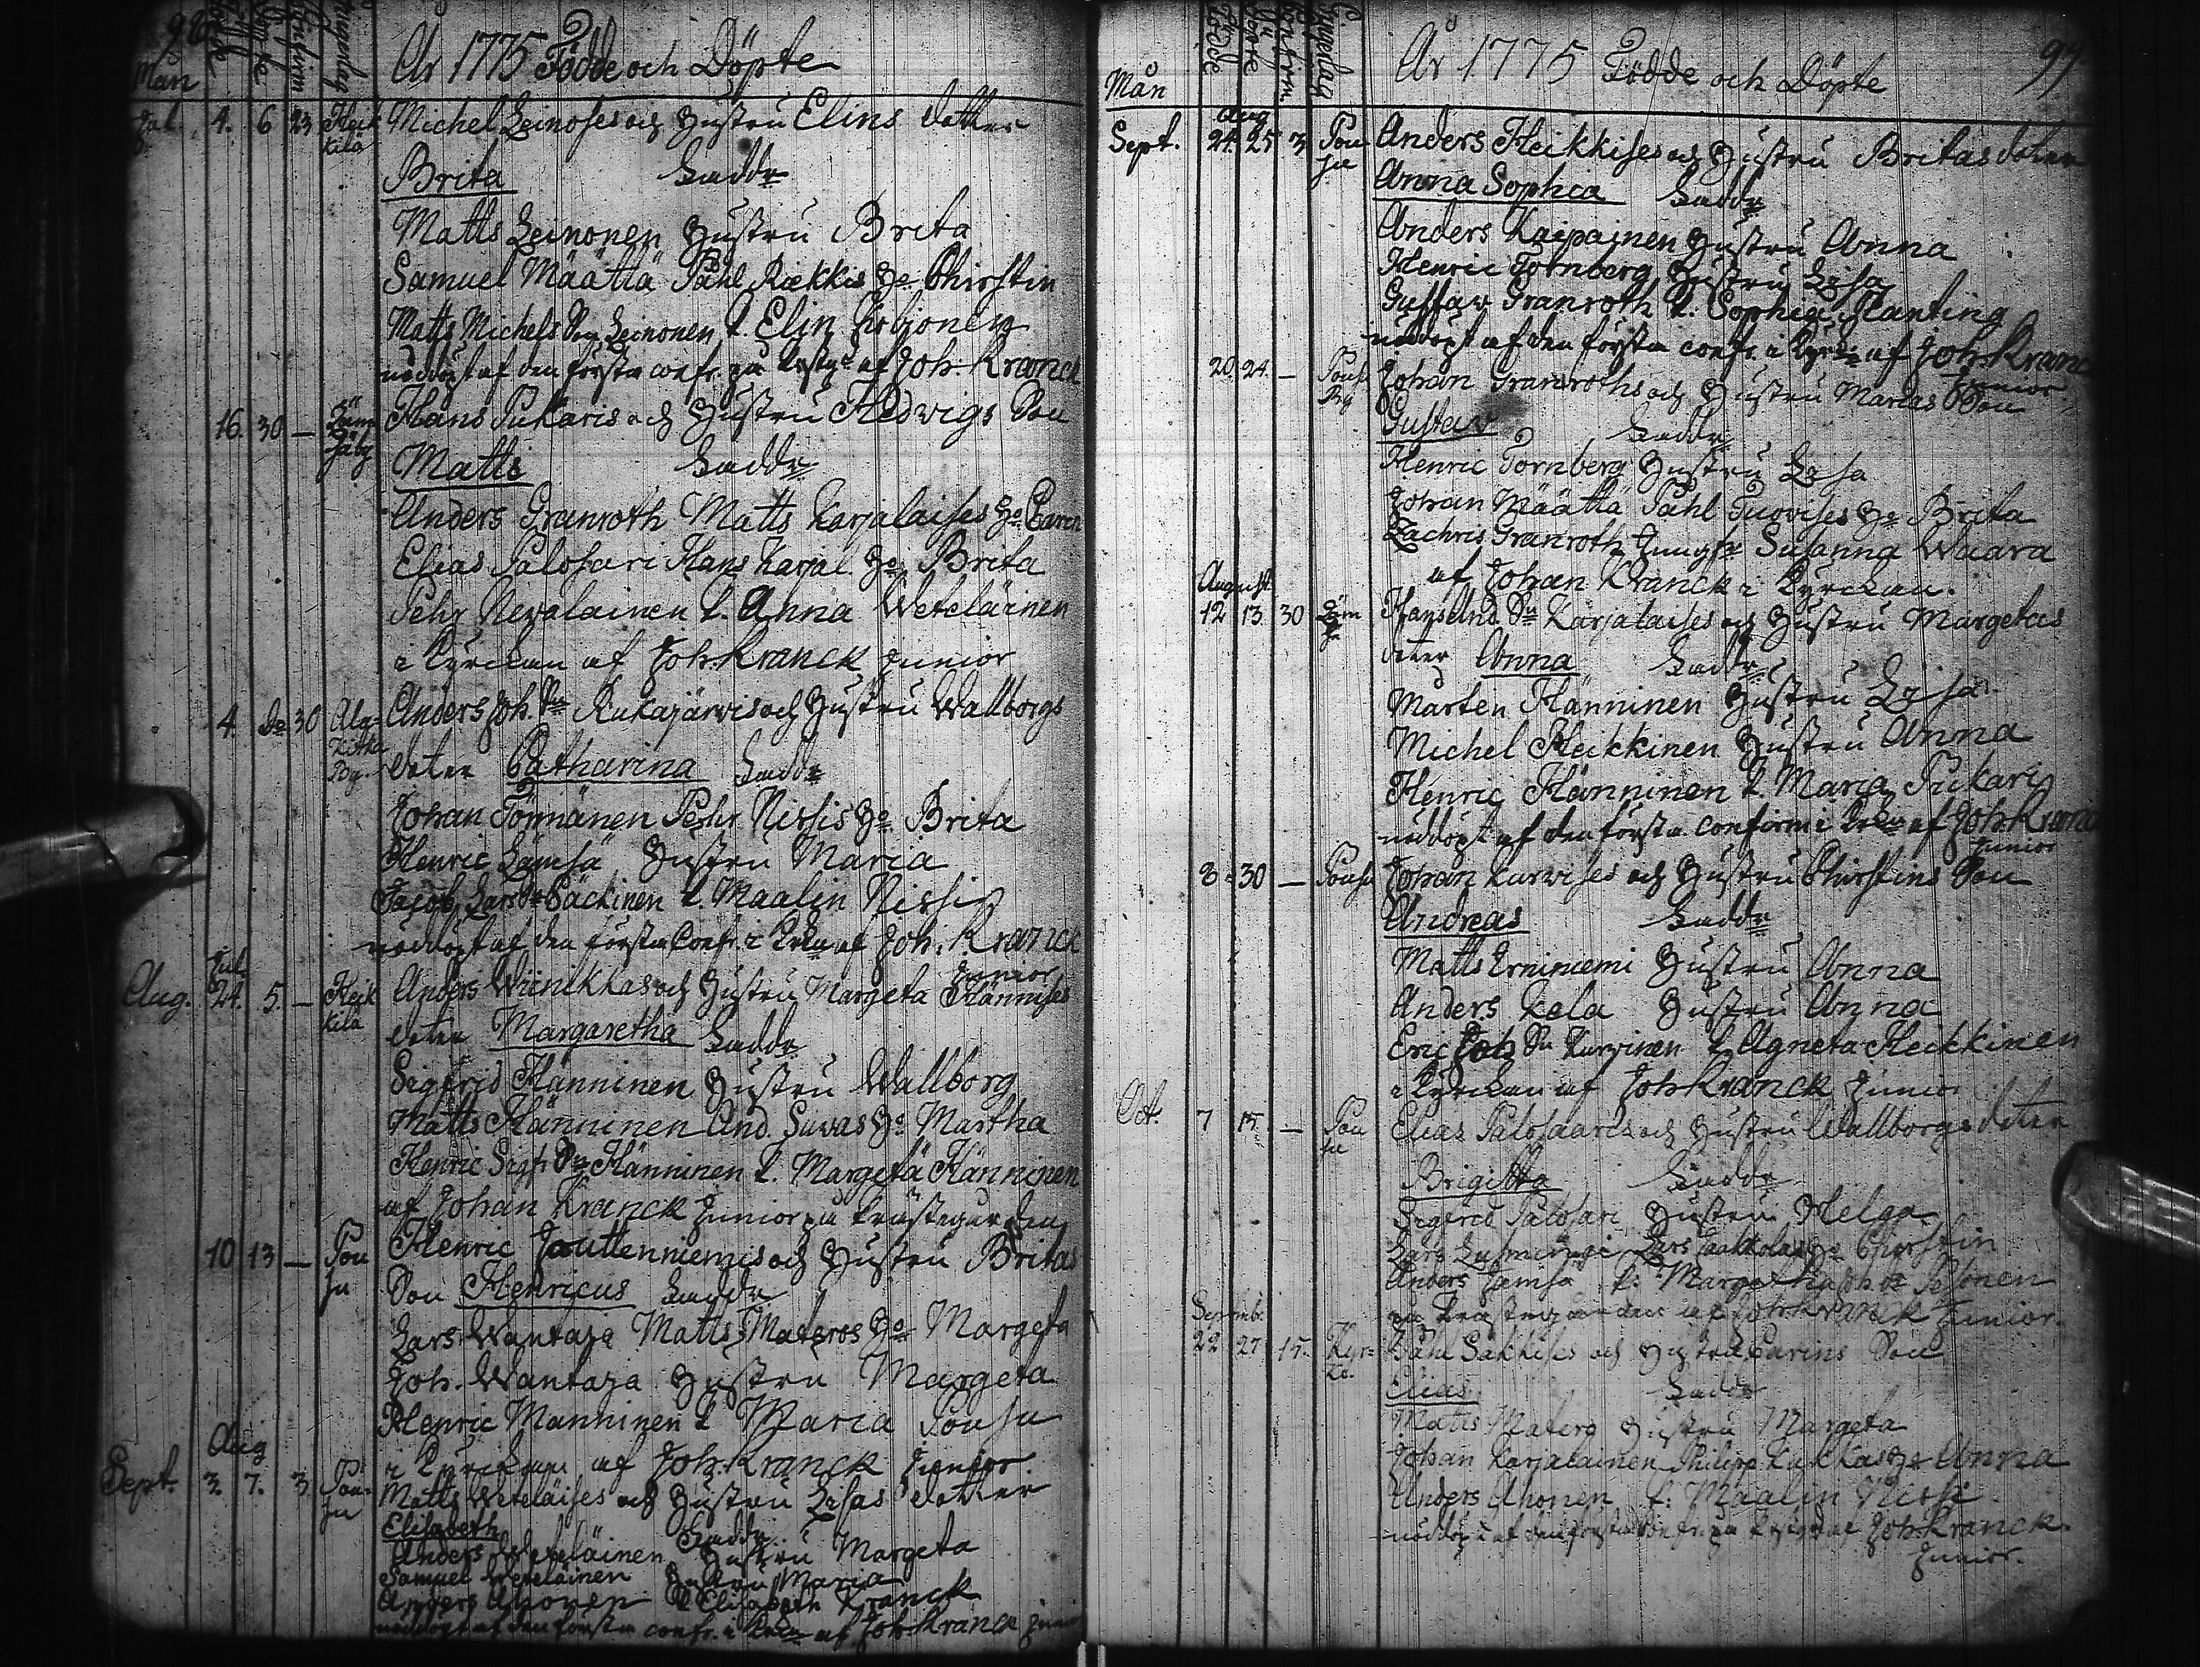 98
Mån Födde Döpte Confirm Byggelag
År 1775 Födde och Döpte
Jul. 4. 6 23 Heik Michel Leinoses och Hustru Elins dotter
kilä
Brita Faddr
Matts Leinonen Hustru Brita
Samuel Määttä Påhl Riekkis Ho Chirstin
Matts Michels Son Leinonen P. Elin
nöddöpt af den första conf. på af Joh. Kranck
16. 30 — Hans Pukaris och Hustru Hedvigs Son
Matts Faddr
Anders Granroth Matts Karjalaises Ho Carin
Elias Palosari Hans Karjal. Ho Brita
Pehr Nevalainen P. Anna Weteläinen
i Kyrckan af Joh. Kranck Junior
4. Do 30 Ala- Anders Joh. Sn Kukajärvis och Hustru Wallborgs
Kitka
By. doter Catharina Faddr
Johan Törmänen Pehr Nissis Ho Brita
Henric Lämsä Hustru Maria
Jacob Lars Sn Päckinen P. Maalin Nissi
nöddöpt af den första Conf. i af Joh. Kranck
Junior
Jul.
Aug. 24. 5. — Heik Anders Wiinikkas och Hustru Margeta Hännises
kilä
doter Margaretha Faddr
Sigfrid Hänninen Hustru Wallborg
Matts Hänninen And. Suvas Ho Martha
Henric Sigfr Sn Hänninen P. Margeta Hänninen
af Johan Kranck Junior på Prästegården
10 13 — Pou Henric Jouttenniemis och Hustru Britas
su
Son Henricus Faddr
Lars Wantaja Matts Materos Ho Margeta
Joh. Wantaja Hustru Margeta
Henric Manninen P. Maria Pousu
i Kyrckan af Joh. Kranck Junior.
Aug
Sept. 3. 7. 3. Pou- Matts Weteläises och Hustru Lisas dotter
su
Elisabeth Faddr
Anders Weteläinen Hustru Margeta
Samuel Weteläinen Hustru Maria
Anders Ahonen P. Elisabeth Kranck
nöddöpt af den första conf. i af Joh. Kranck Junior
99
Mån Födde Döpte Confirm. Byggelag
År 1775 Födde och Döpte
Aug
Sept. 24. 25 3 Pou Anders Heikkises och Hustru Britas doter
su
Anna Sophia Faddr
Anders Kaipainen Hustru Anna
Henric Tornberg Hustru Lisa
Gustaw Granroth P. Sophia Planting
nöddöpt af den första conf. i Kyrk. af Joh. Kranck
Junior
20. 24. — Pousu Johan Granroths och Hustru Marias Son
By
Gustav Faddr
Henric Tornberg Hustru Lisa
Johan Määttä Påhl Tuovises Ho Brita
Zachris Granroth Jungfr Susanna Waara
af Johan Kranck i Kyrckan.
August.
12 13 30 Hans And. Sn Karjalaises och Hustru Margetas
doter Anna Faddr
Mårten Hänninen Hustru Lisa
Michel Heikkinen Hustru Anna
Henric Hänninen P. Maria Pukari
nöddöpt af den första confirm i af Joh. Kranck
Junior
8 30 — Pousu Johan Kurvises och Hustru Chirstins Son
Andreas Faddr
Matts Erniniemi Hustru Anna
Anders Kela Hustru Anna
Eric Joh Sn Kurvinen P. Agneta Heikkinen
i Kyrckan af Joh Kranck Junior
Oct. 7 15 — Pou Elias Palosaaris och Hustru Wallborgs doter
su
Brigitta Faddr
Sigfrid Palosari Hustru Helga
Lars Lars Jaakkolas Ho Chirstin
Anders Lämsä P. Margetha
på Prästegården af Joh Kranck Junior.
Septemb.
22 27 15. Kyr- Påhl Säkkises och Hustru Carins Son
ko.
Elias Faddr
Matts Matero Hustru Margeta
Johan Karjalainen Philipp Kukkas Ho Anna
Anders Ahonen P. Maalin Nissi
nöddöpt af den första conf. på af Joh Kranck
Junior.